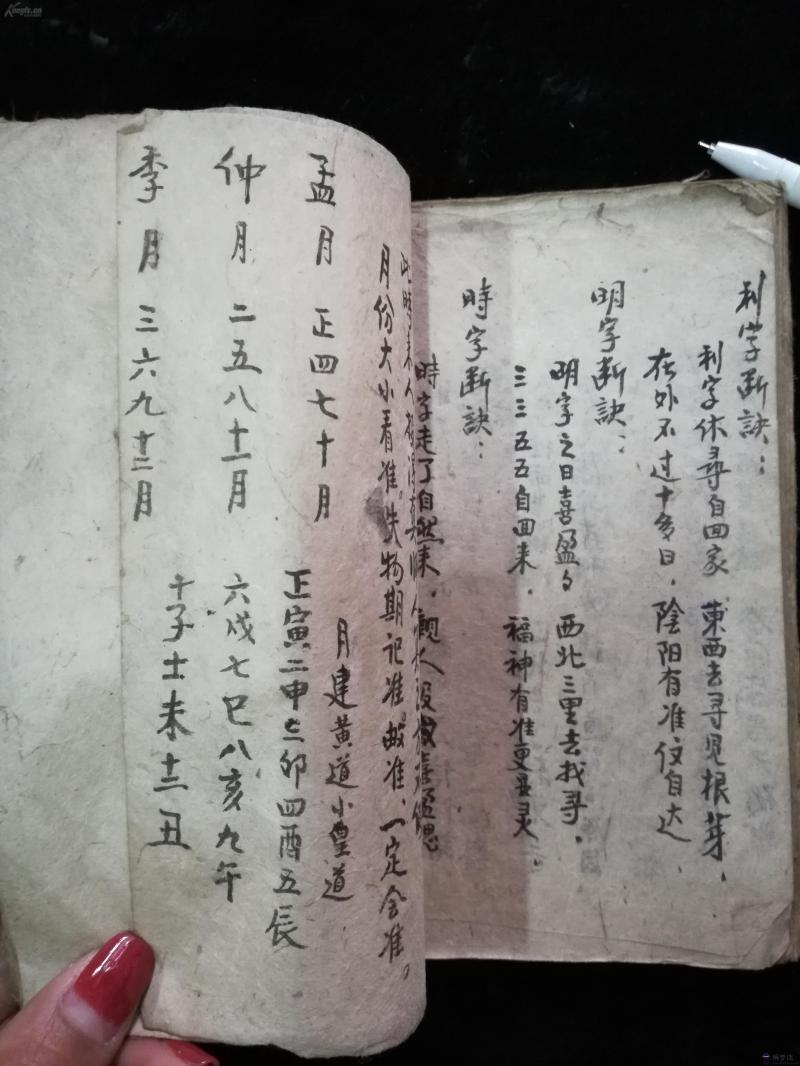 利字断訣：
利字休尋自回家 東西去寻見根芽、
在外不过十多日、陰阳有准仪自达、
明字断訣：
明字之日喜盈々 西北三里去找寻、
三三五五自回来、福神有准更显灵、
時字断訣：
時字走了自然来、
此時来人
月份大小看准。失物期记准。故准、一定会准。
孟月 正四七十月
仲月 二五八十一月
季月 三六九十二月
月建黄道小皇道
正寅二申三卯四酉五辰
六戌七巳八亥九午
十子士未十二丑
Kongfz.cn